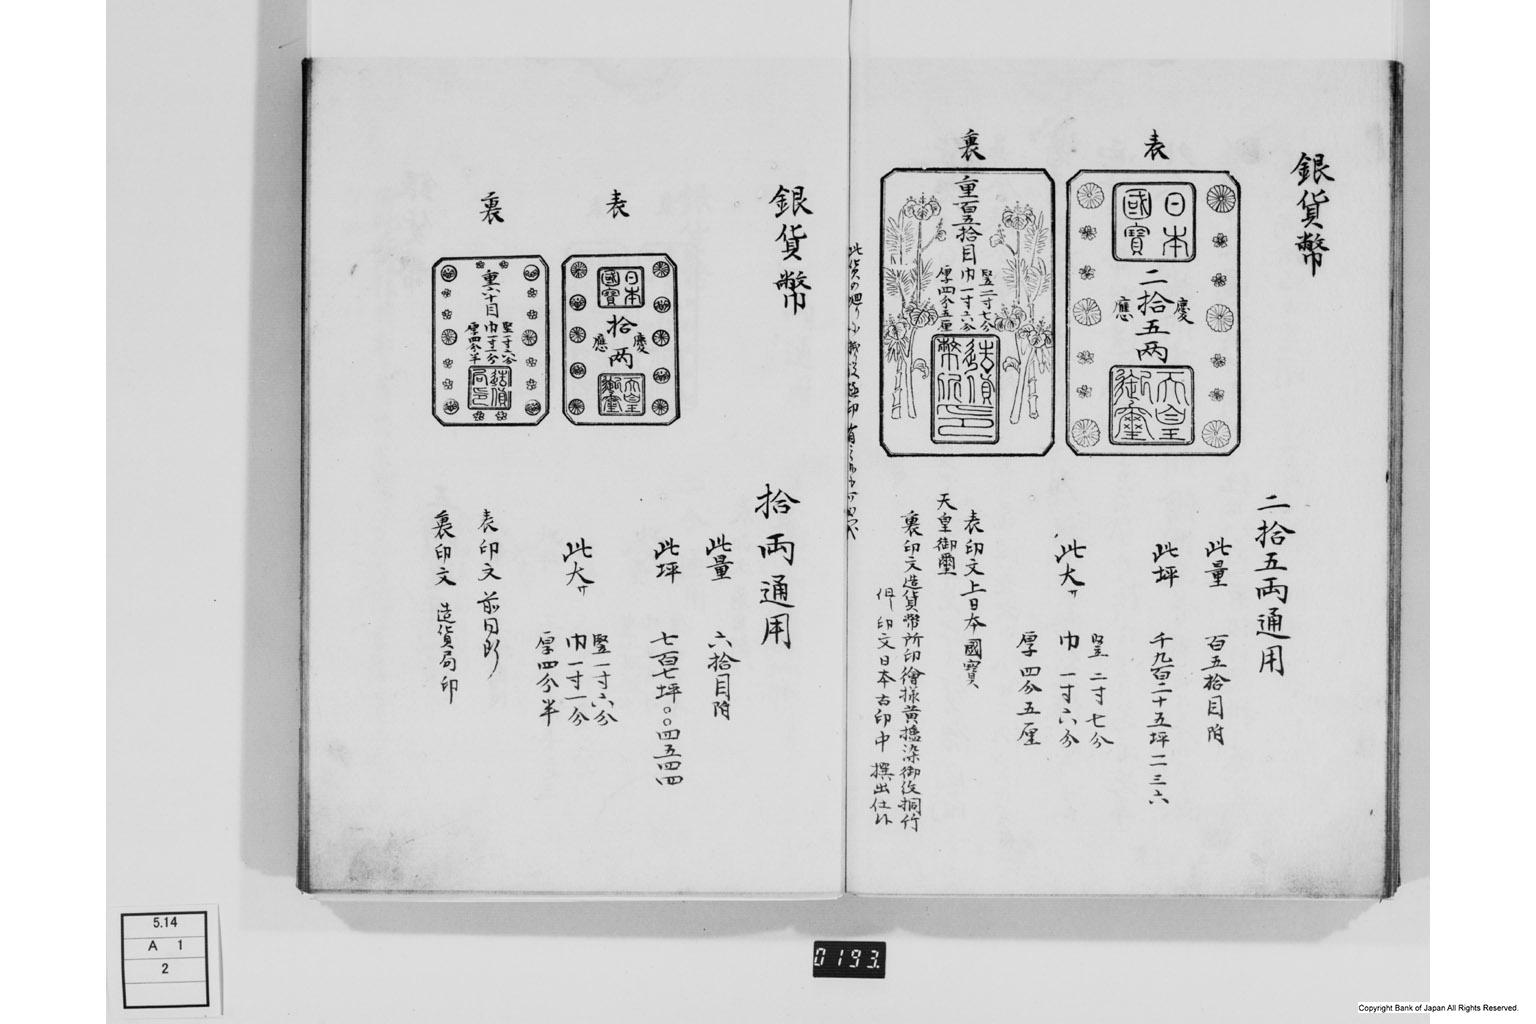 銀貨幣
表
日本
國寶
二拾五两
慶
應
天皇
御璽
裏
重百五拾目
竪二寸七分
巾一寸六分
厚四分五厘
造貨
幣所
印
二拾五両通用
此量 百五拾目附
此坪 千九百二十五坪二三六
此大サ 竪二寸七分
巾一寸六分
厚四分五厘
表印文上日本國寶
天皇御璽
裏印文造貨幣所印繪様黄櫨染御紋桐竹
印文日本古印中撰出仕候
銀貨幣
表
日本
國寶
拾两
慶
應
天皇
御璽
裏
重六十目
竪一寸六分
巾一寸一分
厚四分半
造貨
局印
拾両通用
此量 六拾目附
此坪 七百七坪〇〇四五四四
此大サ 竪一寸六分
巾一寸一分
厚四分半
表印文前同断
裏印文 造貨局印
5.14
A 1
2
0193.
Copyright Bank of Japan All Rights Reserved.